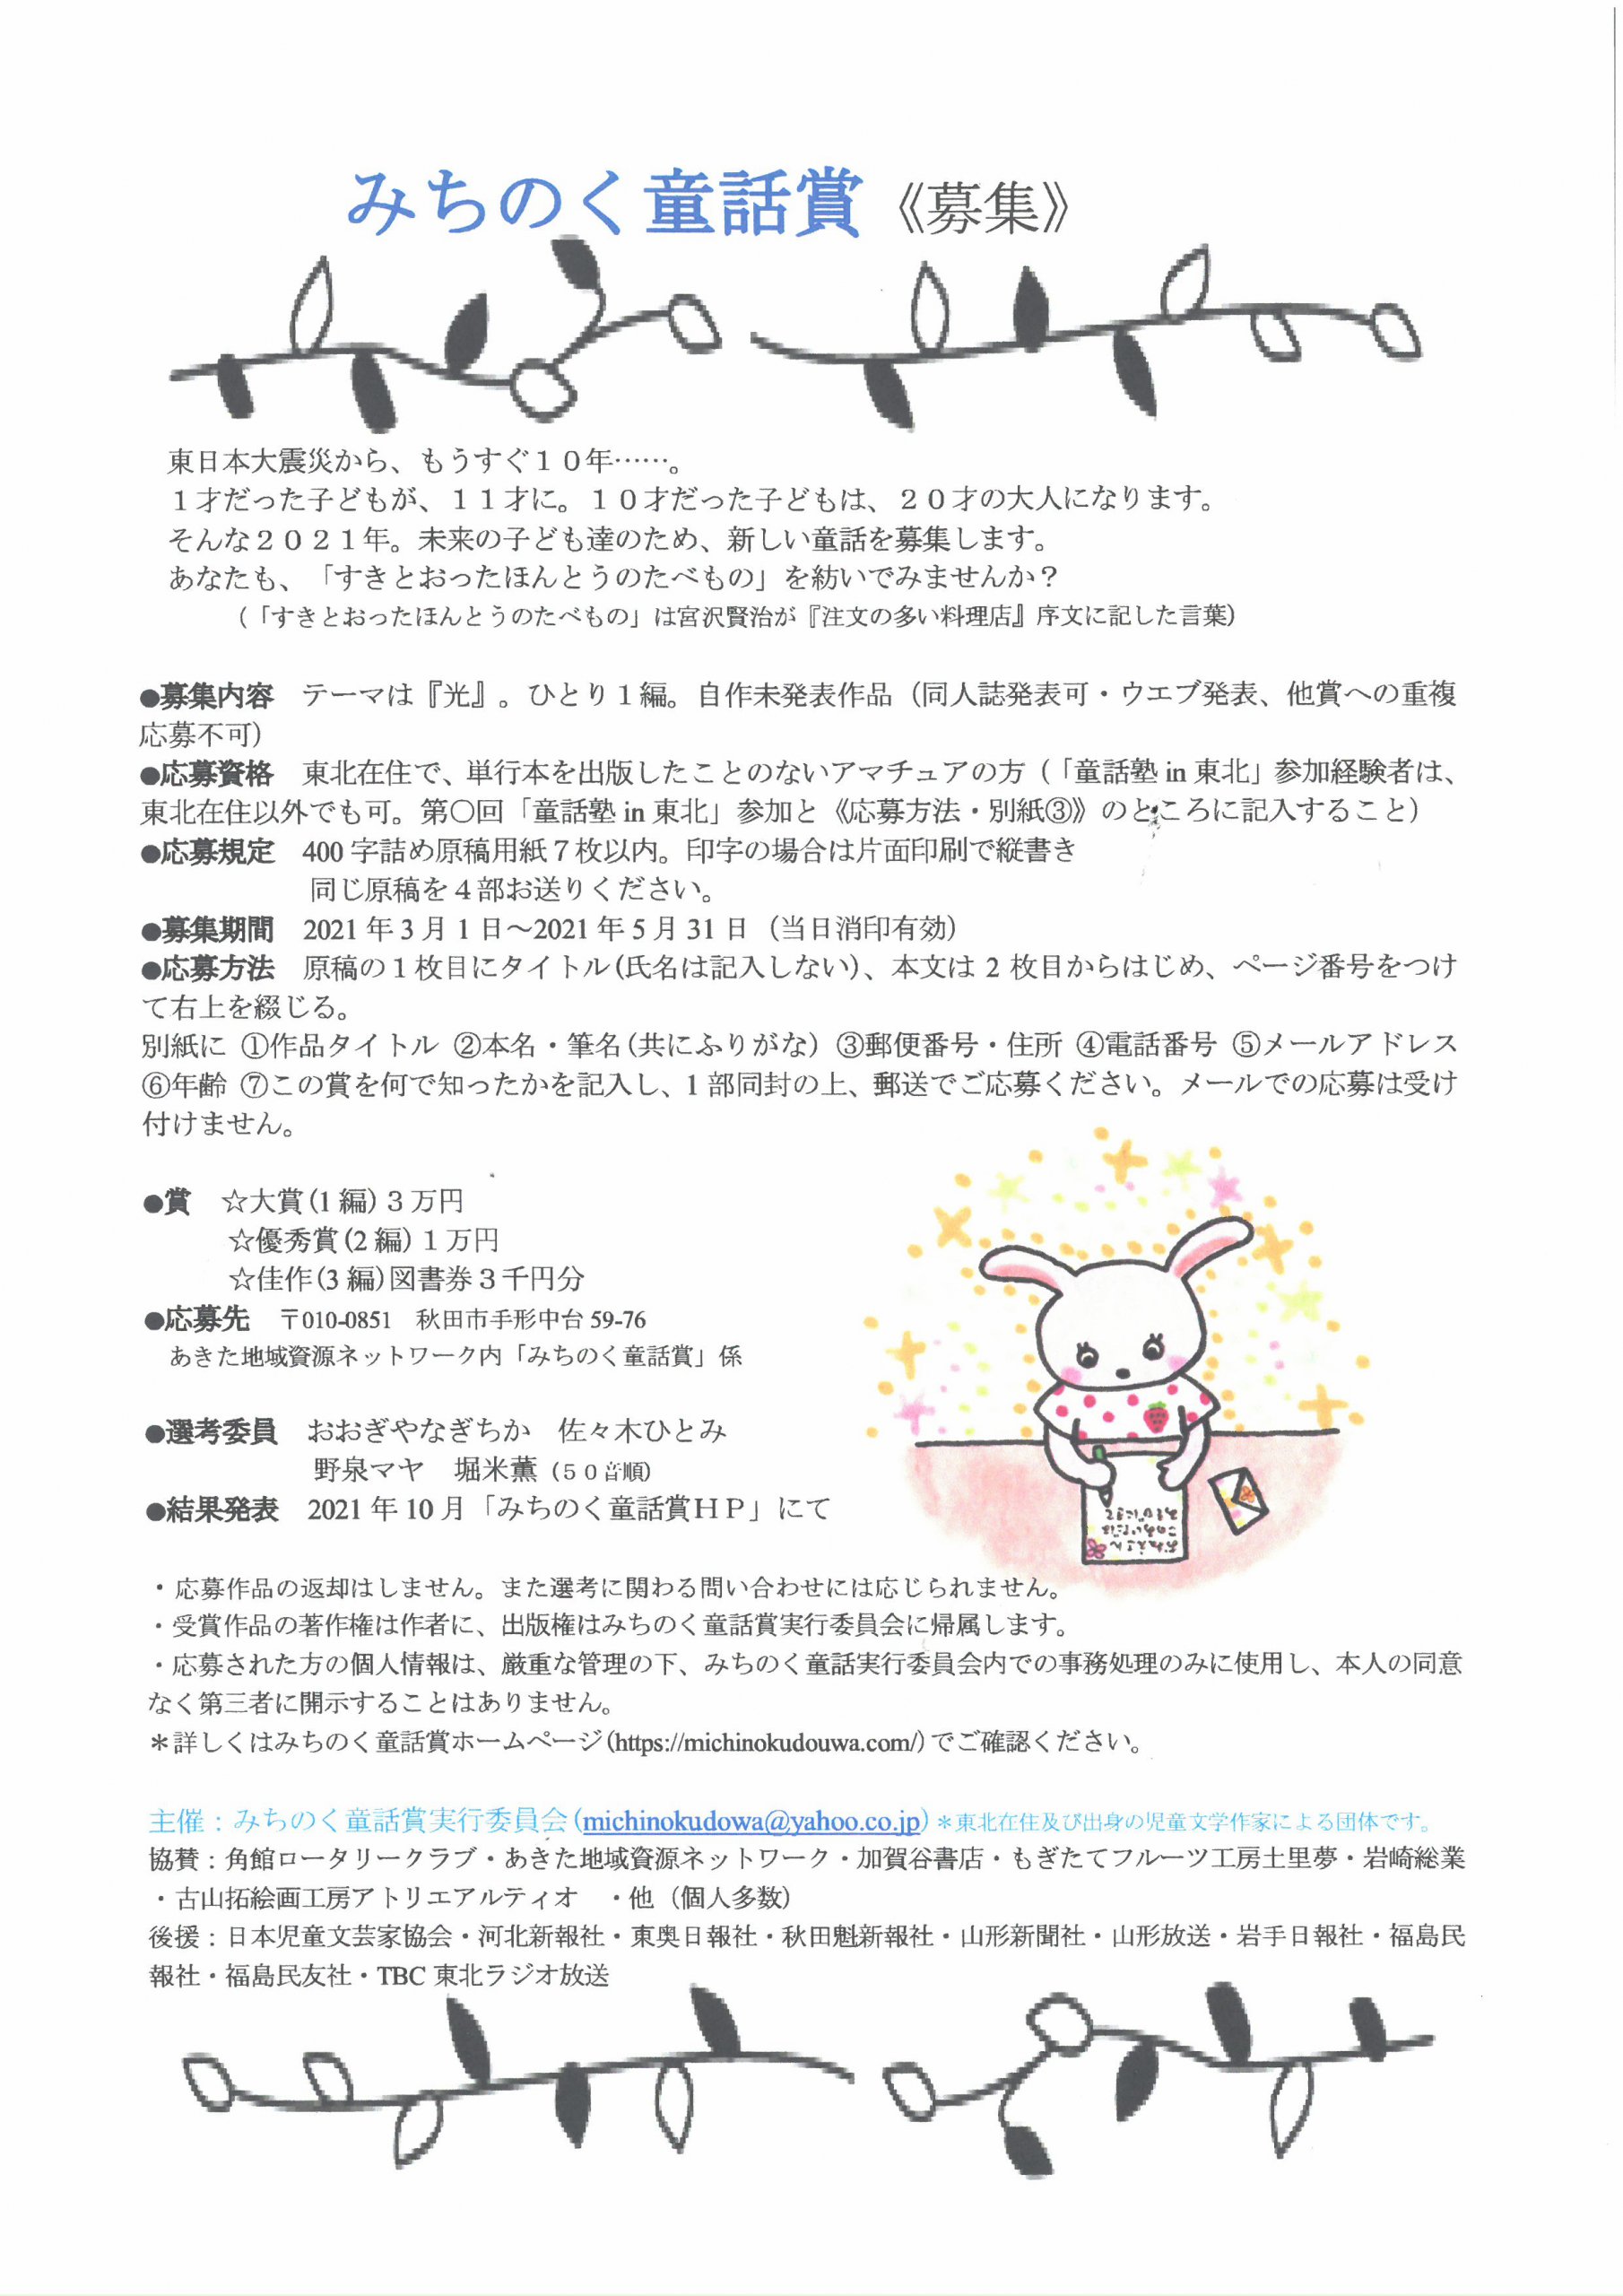 みちのく童話賞《募集》
東日本大震災から、もうすぐ１０年……。
１才だった子どもが、１１才に。１０才だった子どもは、２０才の大人になります。
そんな２０２１年。未来の子ども達のため、新しい童話を募集します。
あなたも、「すきとおったほんとうのたべもの」を紡いでみませんか？
（「すきとおったほんとうのたべもの」は宮沢賢治が『注文の多い料理店』序文に記した言葉）
●募集内容　テーマは『光』。ひとり１編。自作未発表作品（同人誌発表可・ウエブ発表、他賞への重複
応募不可）
●応募資格　東北在住で、単行本を出版したことのないアマチュアの方（「童話塾 in 東北」参加経験者は、
東北在住以外でも可。第〇回「童話塾 in 東北」参加と《応募方法・別紙③》のところに記入すること）
●応募規定　400 字詰め原稿用紙７枚以内。印字の場合は片面印刷で縦書き
同じ原稿を４部お送りください。
●募集期間　2021 年 3 月 1 日～2021 年 5 月 31 日（当日消印有効）
●応募方法　原稿の１枚目にタイトル(氏名は記入しない)、本文は 2 枚目からはじめ、ページ番号をつけ
て右上を綴じる。
別紙に ①作品タイトル ②本名・筆名(共にふりがな) ③郵便番号・住所 ④電話番号 ⑤メールアドレス
⑥年齢 ⑦この賞を何で知ったかを記入し、1 部同封の上、郵送でご応募ください。メールでの応募は受け
付けません。
●賞　☆大賞(1 編)３万円
☆優秀賞(2 編)１万円
☆佳作(3 編)図書券３千円分
●応募先　〒010-0851　秋田市手形中台 59-76
あきた地域資源ネットワーク内「みちのく童話賞」係
●選考委員　おおぎやなぎちか　佐々木ひとみ
野泉マヤ　堀米薫（５０音順）
●結果発表　2021 年 10 月「みちのく童話賞ＨＰ」にて
・応募作品の返却はしません。また選考に関わる問い合わせには応じられません。
・受賞作品の著作権は作者に、出版権はみちのく童話賞実行委員会に帰属します。
・応募された方の個人情報は、厳重な管理の下、みちのく童話実行委員会内での事務処理のみに使用し、本人の同意
なく第三者に開示することはありません。
＊詳しくはみちのく童話賞ホームページ(https://michinokudouwa.com/)でご確認ください。
主催：みちのく童話賞実行委員会(michinokudowa@yahoo.co.jp)＊東北在住及び出身の児童文学作家による団体です。
協賛：角館ロータリークラブ・あきた地域資源ネットワーク・加賀谷書店・もぎたてフルーツ工房土里夢・岩崎総業
・古山拓絵画工房アトリエアルティオ　・他（個人多数）
後援：日本児童文芸家協会・河北新報社・東奥日報社・秋田魁新報社・山形新聞社・山形放送・岩手日報社・福島民
報社・福島民友社・TBC 東北ラジオ放送